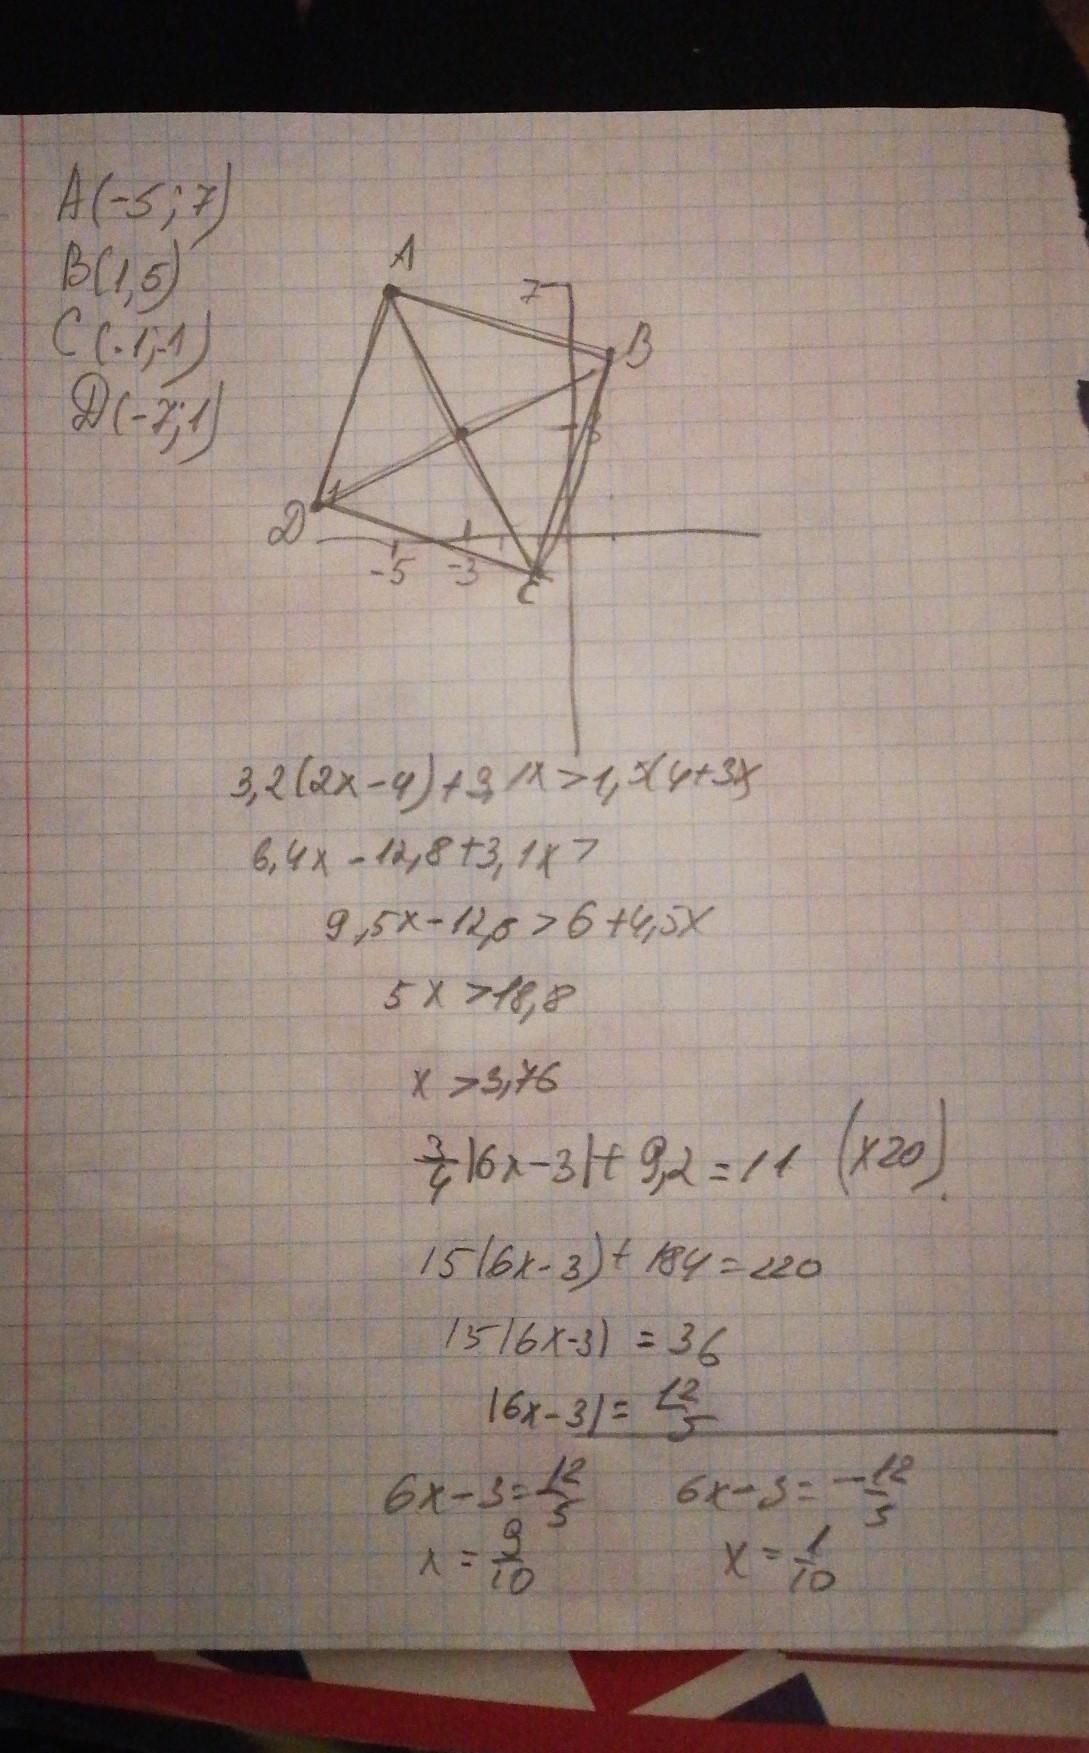 A(-5; 7)
B(1, 5)
C(-1; -1)
D(-7; 1)
A
7
B
3
D
1
-5
-3
C
3,2(2x-4)+3,1x>1,5(4+3x)
6,4x-12,8+3,1x>
9,5x-12,8>6+4,5x
5x>18,8
x>3,76
3/4|6x-3|+9,2=11 (x20).
15|6x-3|+184=220
15|6x-3|=36
|6x-3|=12/5
6x-3=12/5 6x-3=-12/5
x=9/10 x=1/10